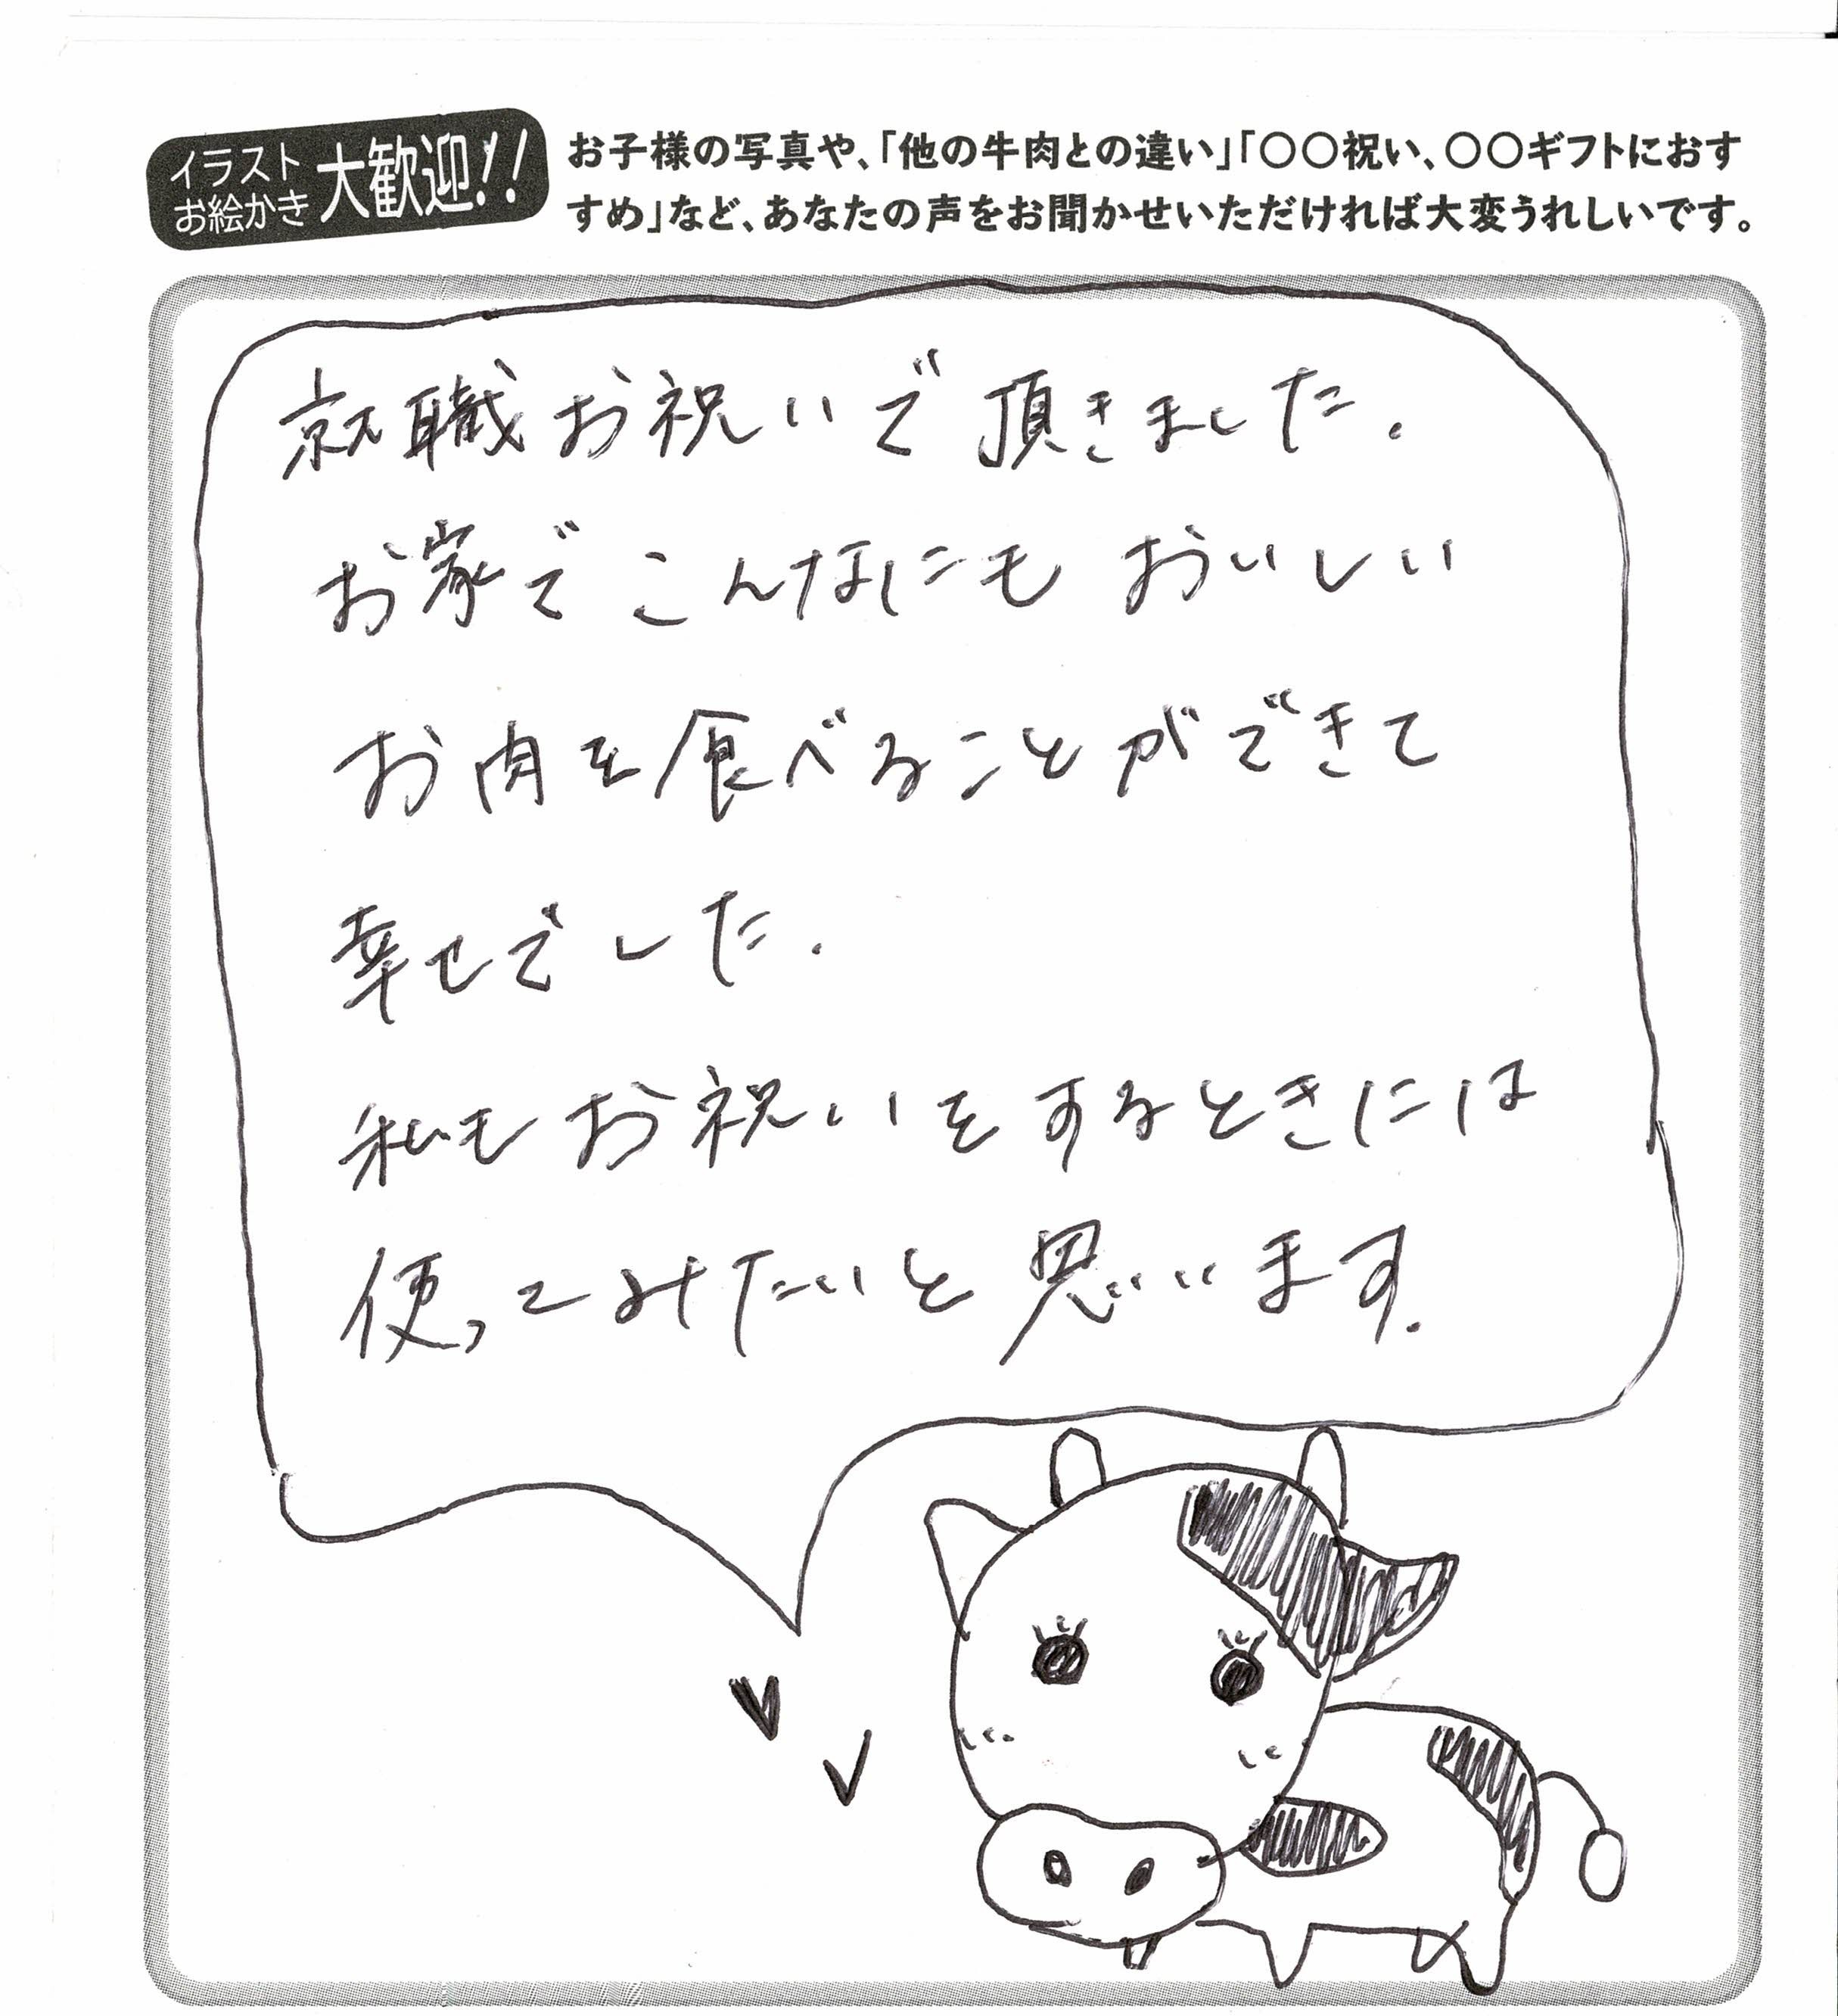 イラスト
お絵かき
大歓迎!!
お子様の写真や、「他の牛肉との違い」「〇〇祝い、〇〇ギフトにおす
すめ」など、あなたの声をお聞かせいただければ大変うれしいです。
就職お祝いで頂きました.
お家でこんなにもおいしい
お肉を食べることができて
幸せでした.
私もお祝いをするときには
使ってみたいと思います.